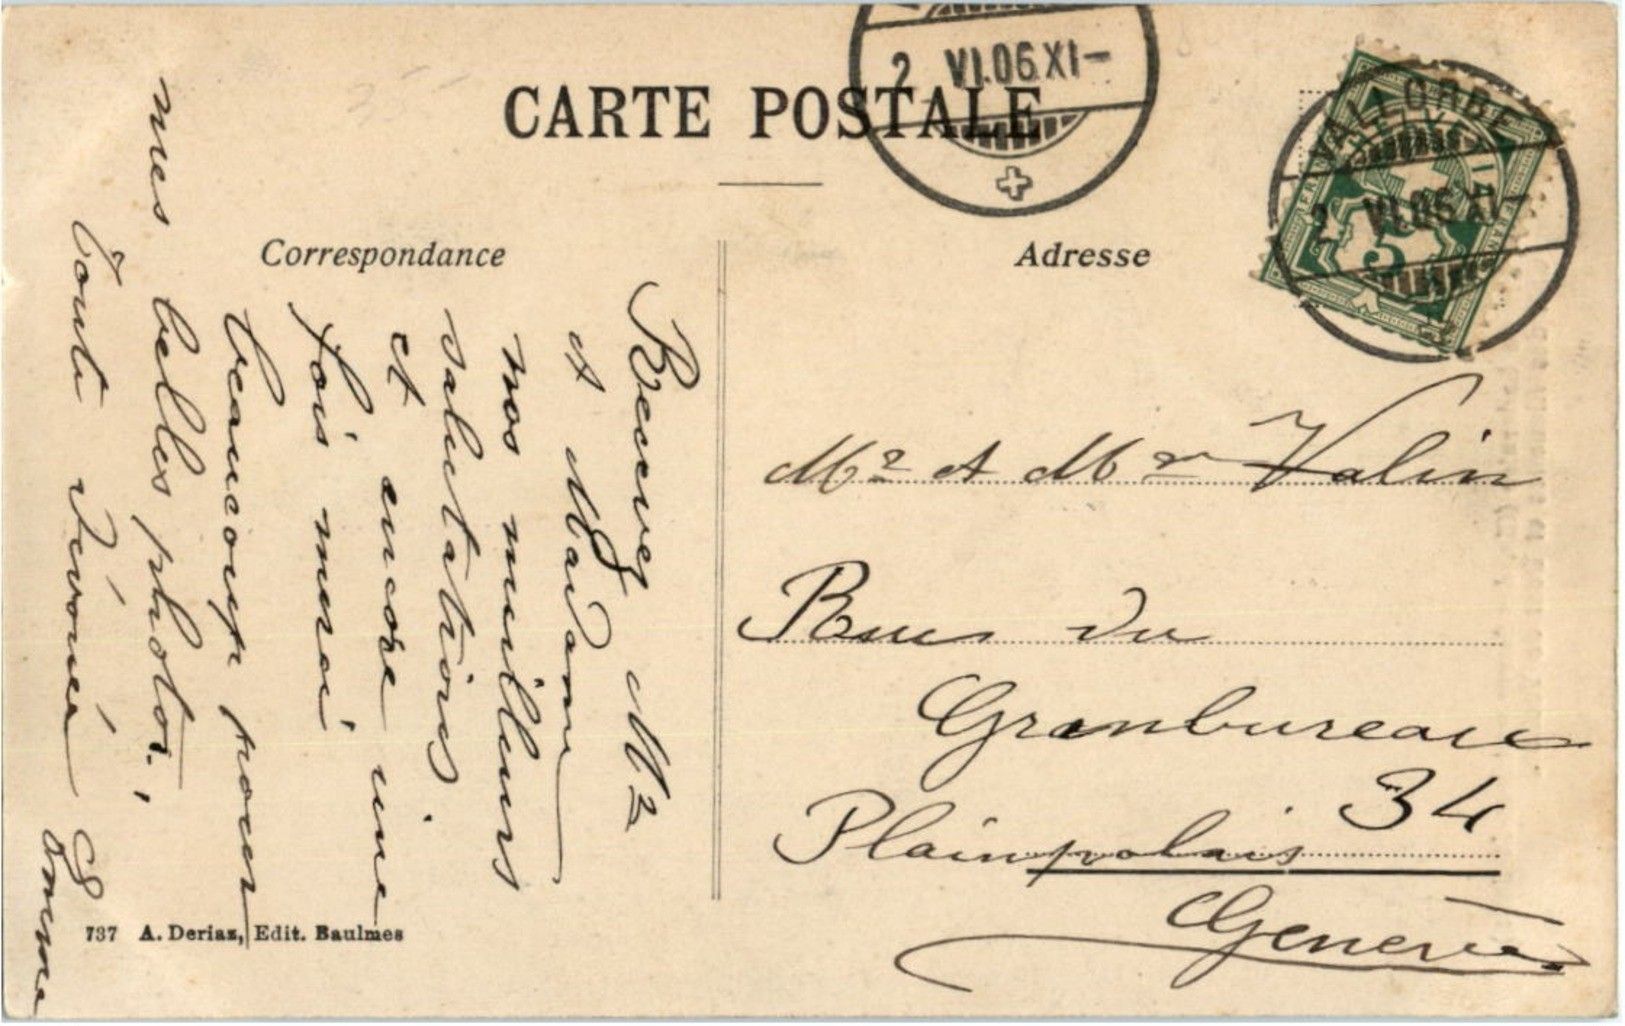 CARTE POSTALE
2 VI.06 XI-
VALLORBE
HELVETIA
2 VI.06 XI
5
Correspondance
Adresse
Recevez Mr
et Madame
nos meilleurs
salutations
et encore une
fois merci
beaucoup pour
mes belles photos,
Toute dévouée Emma
Mr et Mme Valin
Rue du
Granbureau
34
Plainpalais
Genève
737 A. Deriaz, Edit. Baulmes